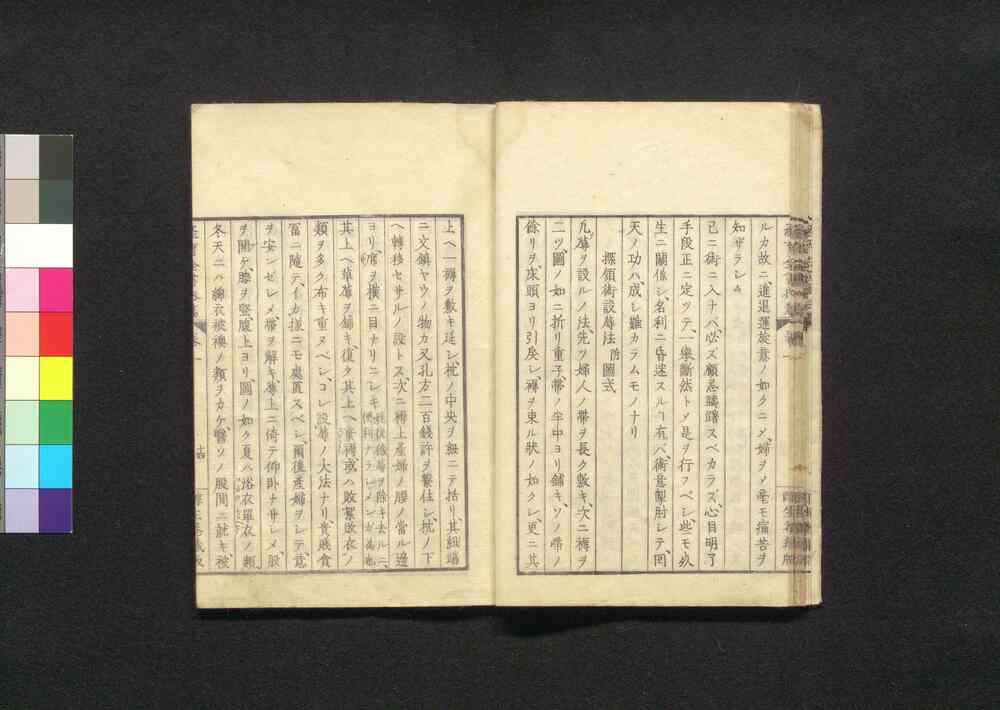 ルカ故ニ進退運旋意ノ如クニメ婦ヲメ毫モ痛苦ヲ
知ザラシム
已ニ術ニ入ナバ必ズ顧忌躊躇スベカラズ心目明了
手段正ニ定ッテ一擧斷然トメ是ヲ行フベシ些モ
生ニ關係シ名利ニ昏迷スルヿ有バ術意掣肘シテ囘
天ノ功ハ成シ難カラムモノナリ
探領術設蓐法 附圖式
凡蓐ヲ設ルノ法先ツ婦人ノ帶ヲ長ク敷キ次ニ褥ヲ
二ツ圖ノ如ニ折リ重子帶ノ半中ヨリ鋪キソノ帶ノ
餘リヲ床頭ヨリ引戻シ褥ヲ束ル狀ノ如クシ更ニ其
上ヘ一褥ヲ敷キ延シ枕ノ中央ヲ紐ニテ括リ其紐端
ニ文鎭ヤウノ物カ又孔方二百錢許ヲ繫住シ枕ノ下
ヘ轉移セサルノ設トス次ニ褥上產婦ノ腰ノ當ル邊
ヨリ席ヲ橫ニ目ナリニシキ
其上ヘ草蓐ヲ鋪キ復タ其上ヘ蜜褥或ハ敗絮敗衣ノ
類ヲ多ク布キ重ヌベシコレ設蓐ノ大法ナリ貴賤貧
冨ニ隨テイカ樣ニモ處置スベシ爾後產婦ヲシテ意
ヲ安ンゼシメ帶ヲ解キ蓐上ニ倚テ仰卧ナサシメ股
ヲ開ケ膝ヲ竪腹上ヨリ圖ノ如ク夏ハ浴衣單衣ノ類
冬天ニハ綿衣被襖ノ類ヲカケ醫ソノ股間ニ就キ被
十四